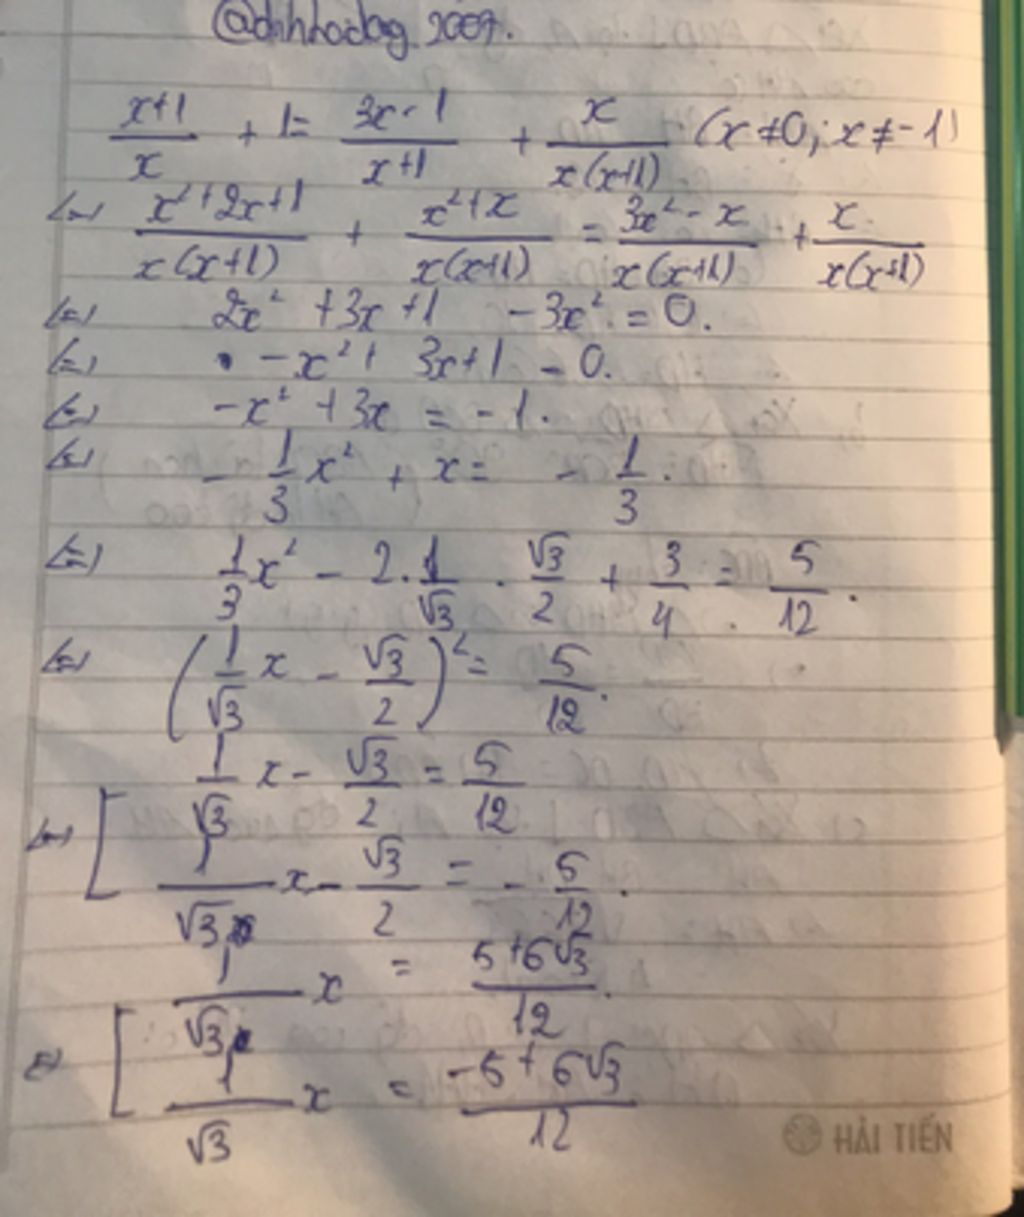 @dinhhodag 2007.
x+1/x + 1 = 3x-1/x+1 + x/x(x+1) (x ≠ 0; x ≠ -1)
<=> x²+2x+1/x(x+1) + x²+x/x(x+1) = 3x²-x/x(x+1) + x/x(x+1)
<=> 2x² + 3x + 1 - 3x² = 0.
<=> -x² + 3x + 1 = 0.
<=> -x² + 3x = -1.
<=> - 1/3 x² + x = - 1/3.
<=> 1/3 x² - 2. 1/√3 . √3/2 + 3/4 = 5/12.
<=> (1/√3 x - √3/2)² = 5/12.
<=> [ 1/√3 x - √3/2 = 5/12
1/√3 x - √3/2 = - 5/12.
<=> [ 1/√3 x = 5+6√3/12.
1/√3 x = -5+6√3/12
HẢI TIẾN